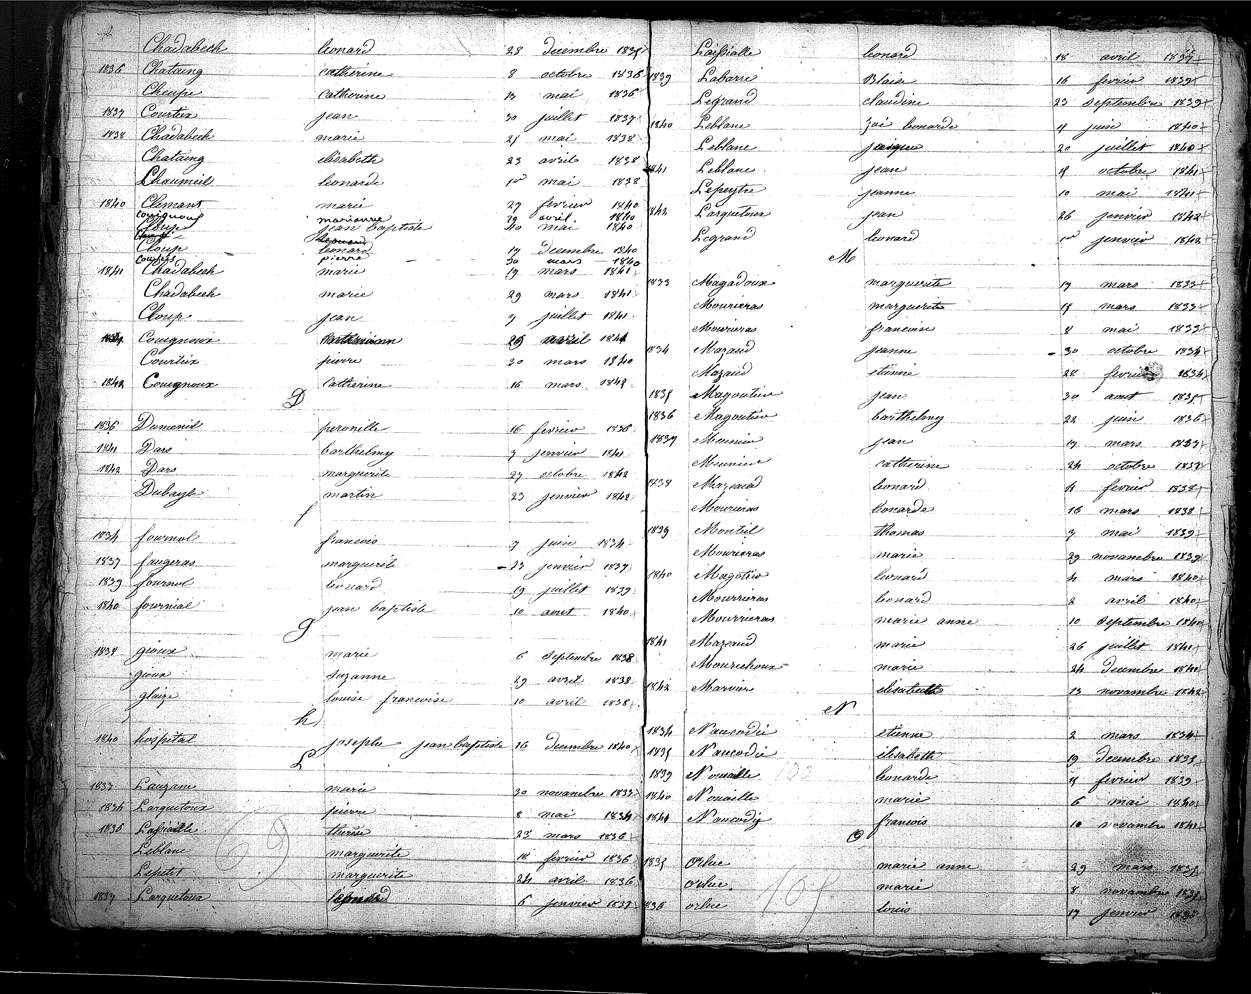 2
Chadabech leonard 28 decembre 1835
1836 Chataing catherine 8 octobre 1836
Cheupe catherine 13 mai 1836
1837 Courtix jean 30 juillet 1837
1838 Chadabech marie 25 mai 1838
Chataing elisabeth 23 avril 1838
Chaumeil leonarde 1er mai 1838
1840 Clemant marie 27 fevrier 1840
Couignoux marianne 29 avril 1840
Cloup jean baptiste 10 mai 1840
Cloup leonard 17 decembre 1840
Courtix pierre 30 mars 1840
1841 Chadabech marie 19 mars 1841
Chadabech marie 29 mars 1841
Cloup jean 7 juillet 1841
Couignoux avril 1841
Courtix pierre 30 mars 1840
1842 Couignoux catherine 16 mars 1842
D
1836 Dumenil peronille 16 fevrier 1836
1841 Dars barthelmy 7 janvier 1841
1842 Dars marguerite 27 octobre 1842
Dubayle martin 23 janvier 1842
f
1834 fournol francois 9 juin 1834
1837 faugeras marguerite 23 janvier 1837
1839 fournol leonard 19 juillet 1839
1840 fournial jean baptiste 10 aout 1840
g
1838 gioux marie 6 septembre 1838
gioux suzanne 29 avril 1838
glaize louise francoise 10 avril 1838
h
1840 hospital josephe jean baptiste 16 decembre 1840
L
1833 Lauzane marie 30 novembre 1833
1834 Larquetoux pierre 8 mai 1834
1836 Laissialle therese 23 mars 1836
Leblanc marguerite 18 fevrier 1836
Lepetit marguerite 24 avril 1836
1837 Larquetoux leonard 6 janvier 1837
69
Laissialle leonard 18 avril 1837
1839 Labarre Blaise 16 fevrier 1839
Legrand claudine 23 septembre 1839
1840 Leblanc Zoé leonarde 4 juin 1840
Leblanc jacques 20 juillet 1840
1841 Leblanc jean 8 octobre 1841
Lepeytre jeanne 10 mai 1841
1842 Larquetoux jean 26 janvier 1842
Legrand leonard 1er janvier 1842
M
1833 Magadoux marguerite 17 mars 1833
Mourieras marguerite 15 mars 1833
Mourieras francoise 8 mai 1833
1834 Mazaud jeanne 30 octobre 1834
Mazaud etienne 28 fevrier 1834
1835 Magoutier jean 30 aout 1835
1836 Magoutier barthelmy 22 juin 1836
1837 Meunier jean 17 mars 1837
Meunier catherine 24 octobre 1837
1838 Mazaud leonard 4 fevrier 1838
Mourieras leonarde 16 mars 1838
1839 Monteil thomas 7 mai 1839
Mourieras marie 29 novembre 1839
1840 Magotier leonard 4 mars 1840
Mourrieras leonard 2 avril 1840
Mourrieras marie anne 10 septembre 1840
1841 Mazaud marie 26 juillet 1841
Mourichoux marie 24 decembre 1841
1842 Marvier elisabeth 13 novembre 1842
N
1834 Naucodie etienne 2 mars 1834
1835 Naucodie elisabeth 19 decembre 1835
1839 Nouaille leonarde 4 fevrier 1839
1840 Nouaille marie 6 mai 1840
1841 Naucody francois 10 novembre 1841
O
1835 Orluc marie anne 29 mars 1835
Orluc marie 8 novembre 1835
1838 orluc louis 17 janvier 1838
105